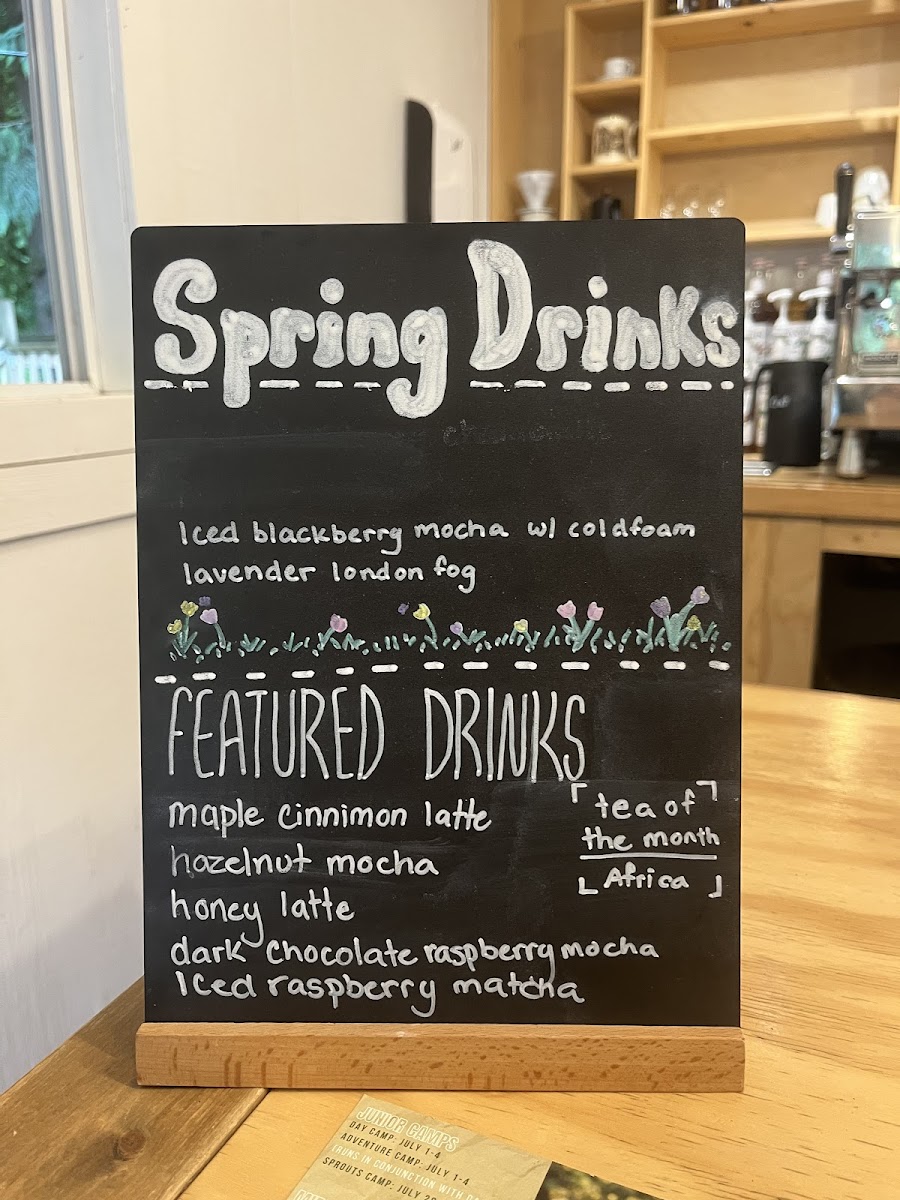 Spring Drinks
Iced blackberry mocha w/ coldfoam
lavender london fog
FEATURED DRINKS
maple cinnimon latte
hazelnut mocha
honey latte
dark chocolate raspberry mocha
Iced raspberry matcha
tea of
the month
Africa
JUNIOR CAMPS
DAY CAMP: JULY 1-4
ADVENTURE CAMP: JULY 1-4
(RUNS IN CONJUNCTION WITH
SPROUTS CAMP: JULY